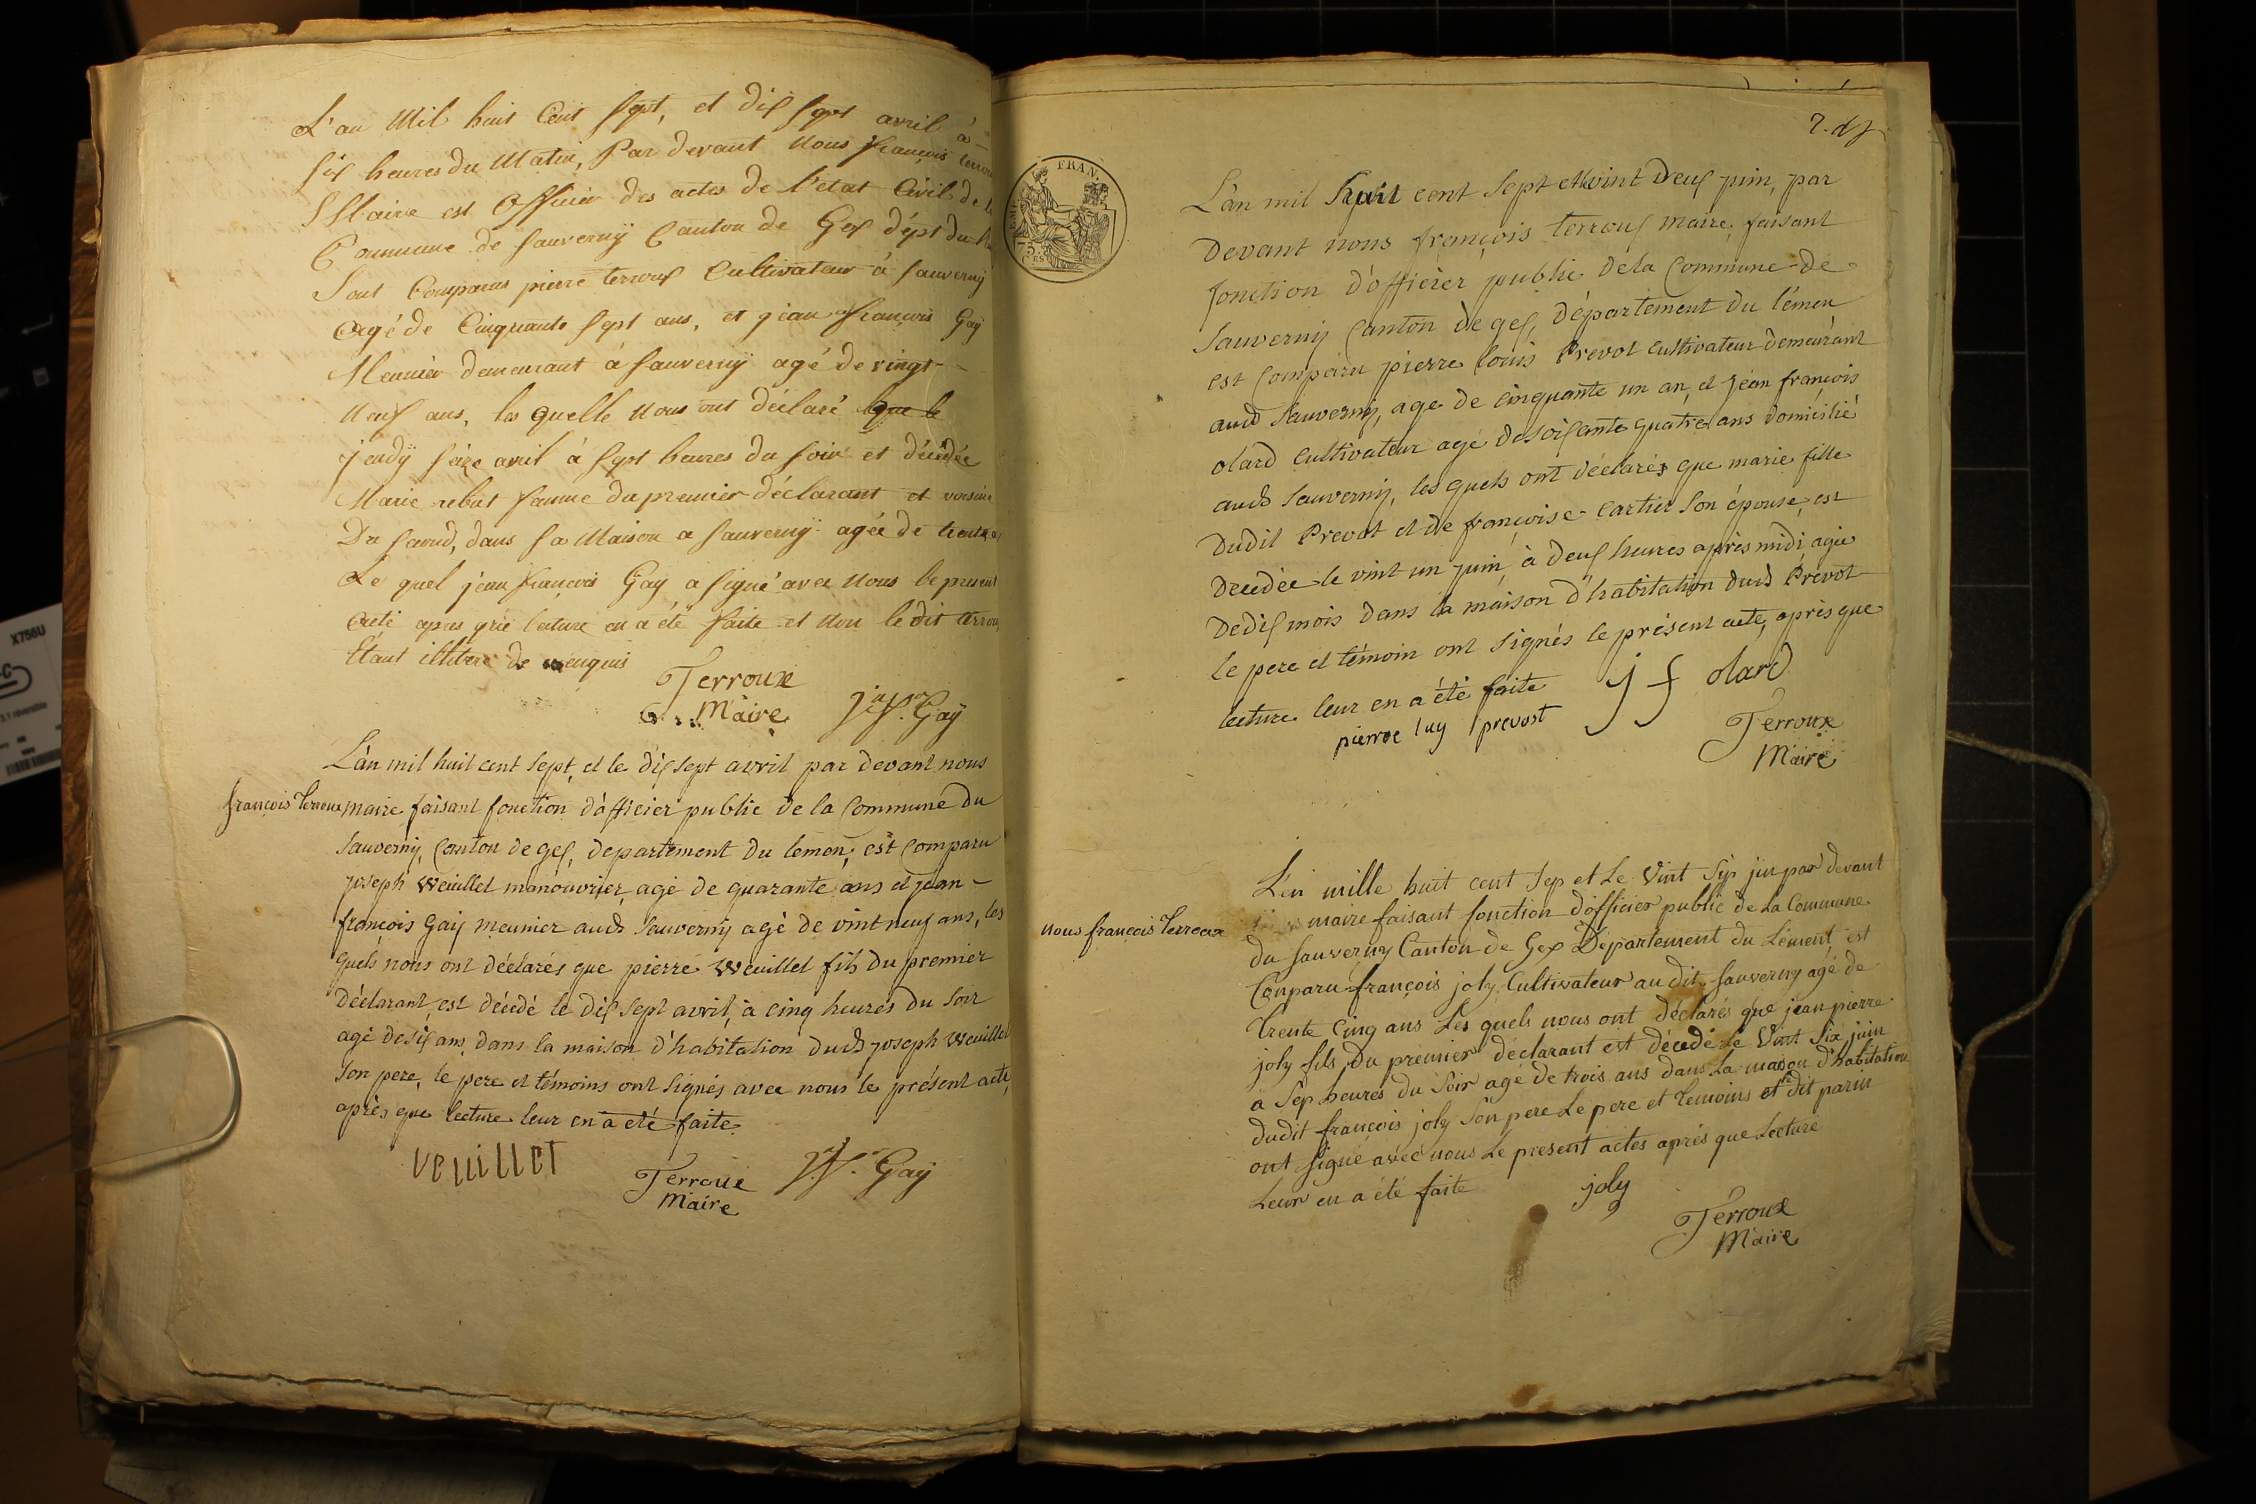 L'an Mil huit Cent sept, et dix sept avril à
six heures du Matin, Par devant Nous françois
Maire est Officier des actes de l'etat Civil de
Commune de Sauvernÿ Canton de Gex dépt du
Sont Comparus pierre terroux Cultivateur à Sauvernÿ
agé de Cinquante sept ans, et jean françois Gaÿ
Meunier demeurant à Sauvernÿ agé de vingt
Neuf ans, les quelle Nous ont déclaré que le
jeudÿ seize avril à sept heures du soir et décédée
Marie rebut famme du premier déclarant et voisine
Du second, dans sa Maison a Sauvernÿ agée de trente
Le quel jean françois Gaÿ a signé avec Nous le present
acte apres que lecture en a été faite et Non le dit terroux
Etant illitere de
Terroux
Maire
J.n f.s Gaÿ
L'an mil huit cent sept, et le dix sept avril par devant nous
françois Terroux maire faisant fonction d'officier public de la Commune du
Sauverny, Canton de gex, departement du lémen, est Comparu
joseph Weuillet manouvrier, agé de quarante ans et jean
françois Gaÿ meunier aud Sauverny agé de vint neuf ans, les
quels nous ont déclarés que pierre Weuillet fils du premier
déclarant, est décédé le dix sept avril, à cinq heures du soir
agé de six ans, dans la maison d'habitation dud joseph Weuillet
son pere, le pere et témoins ont signés avec nous le présent acte,
après que lecture leur en a été faite.
veuillet
Terroux
Maire
J. f.s Gaÿ
FRAN
L'an mil huit cent sept et vint deux juin, par
devant nous françois terroux maire, faisant
fonction d'officier public de la Commune de
Sauverny Canton de gex, département du lémen
est Comparu pierre louis Prevot cultivateur demeurant
aud Sauverny, age de cinquante un an, et jean françois
olard cultivateur agé de soixante quatre ans domicilié
aud Sauverny, les quels ont déclarés que marie fille
dudit Prevot et de françoise cartier son épouse, est
décédée le vint un juin à deux heures après midi, agée
de dix mois dans la maison d'habitation dud Prevot
le pere et témoin ont signés le présent acte, après que
lecture leur en a été faite
j f olard
pierre luy prevost
Terroux
Maire
L'en mille huit cent sep et Le Vint Sip jun par devant
nous françois Terroux maire faisant fonction d'officier public de La Commune
du Sauverny Canton de Gex Département du Lément, est
Conparu françois joly Cultivateur au dit Sauverny agé de
trente Cinq ans Les quels nous ont déclarés que jean pierre
joly fils du premier déclarant est décedé Le Vint Six juin
a Sep heures du Soir agé de trois ans dans La maison d'habitation
dudit françois joly Son pere Le pere et temoins et dit parin
ont signé avec nous Le present actes aprés que Lecture
Leur en a été faite
joly
Terroux
Maire